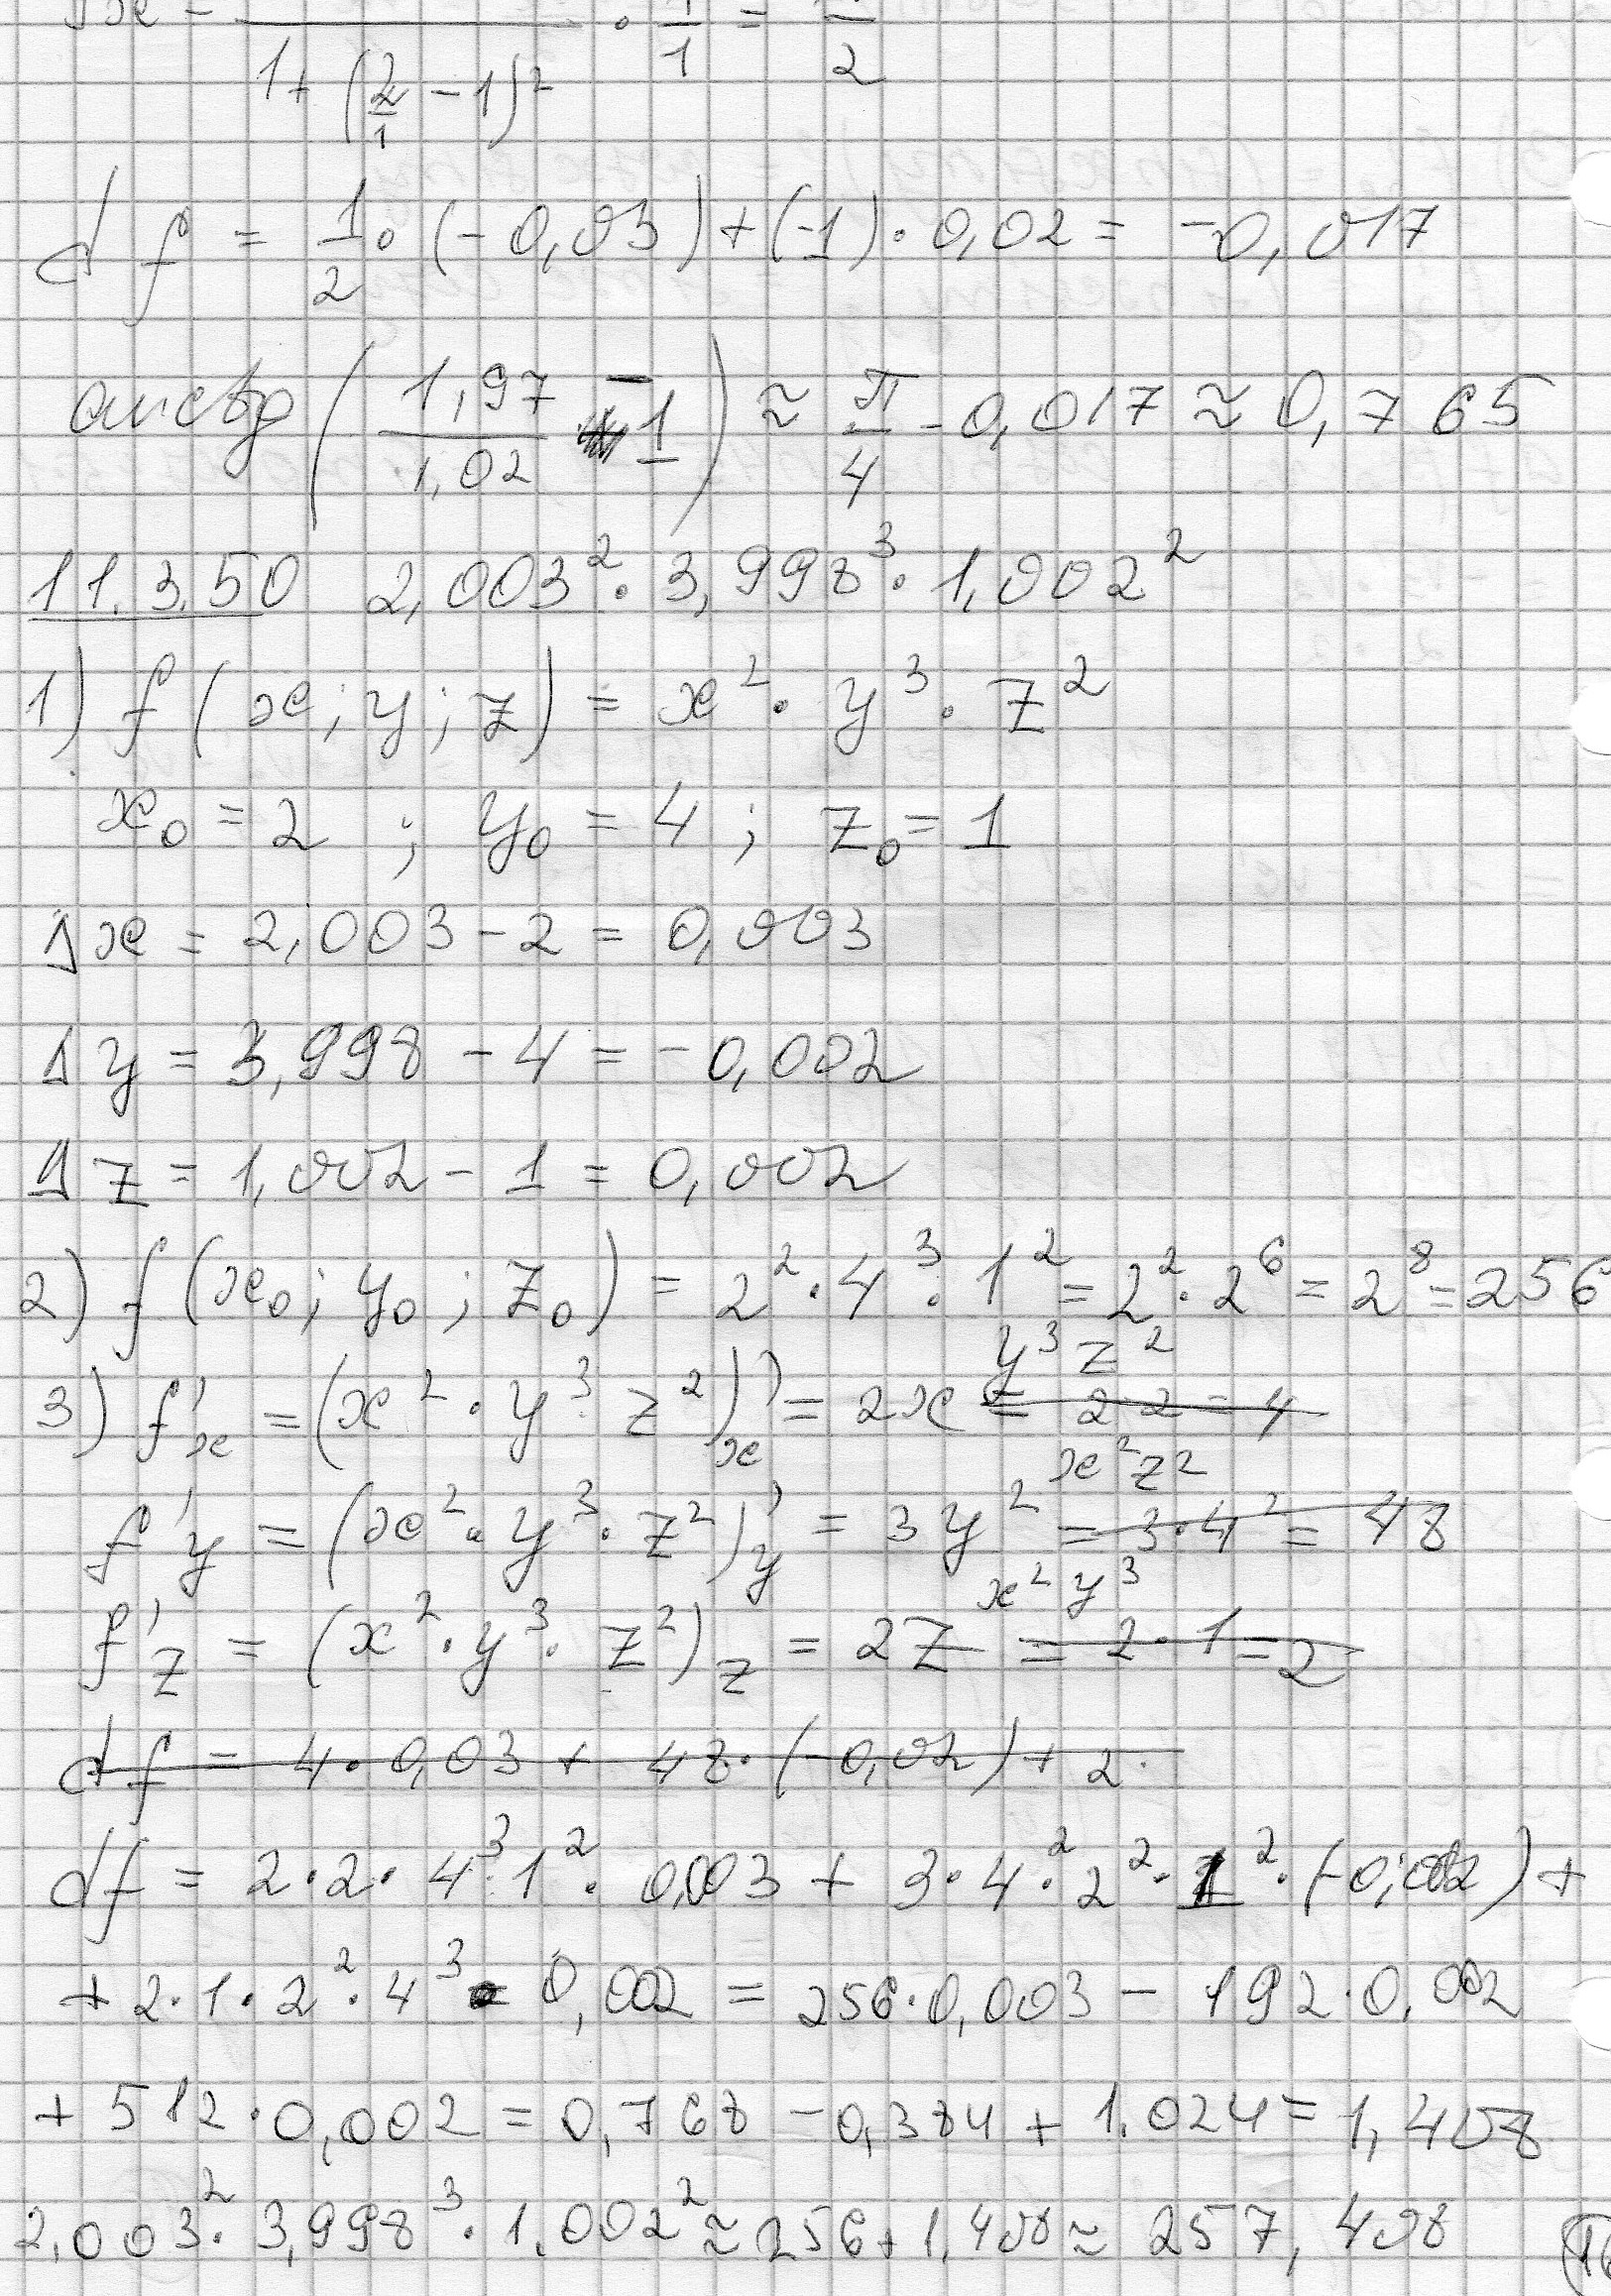 1 + (2/1 - 1)² · 1/1 = 1/2
df = 1/2 · (-0,03) + (-1) · 0,02 = -0,017
arctg (1,97/1,02 - 1) ≈ π/4 - 0,017 ≈ 0,765
11.3.50 2,003² · 3,998³ · 1,002²
1) f(x; y; z) = x² · y³ · z²
x₀ = 2 ; y₀ = 4 ; z₀ = 1
Δx = 2,003 - 2 = 0,003
Δy = 3,998 - 4 = -0,002
Δz = 1,002 - 1 = 0,002
2) f(x₀; y₀; z₀) = 2² · 4³ · 1² = 2² · 2⁶ = 2⁸ = 256
3) f'x = (x² · y³ z²)'x = 2x y³z² = 2 2 = 4
f'y = (x² · y³ · z²)'y = 3y² x²z² = 3·4² = 48
f'z = (x² · y³ · z²)z = 2z x²y³ = 2·1 = 2
df = 4·0,03 + 48·(-0,02) + 2·
df = 2·2·4³·1² · 0,003 + 3·4²·2²·1² · (-0,002) +
+ 2·1·2²·4³ · 0,002 = 256·0,003 - 192·0,002
+ 512·0,002 = 0,768 - 0,384 + 1.024 = 1,408
2,003² · 3,998³ · 1.002² ≈ 256 + 1,408 ≈ 257,408